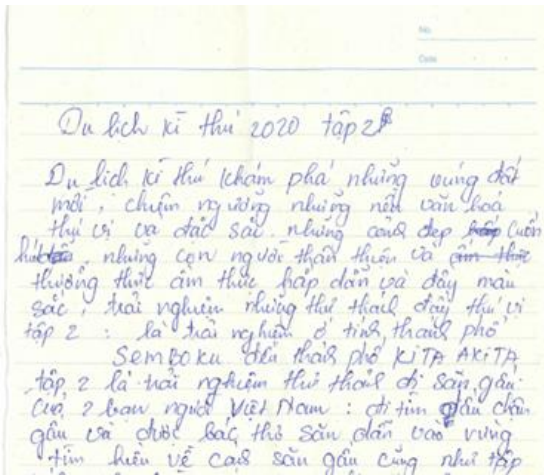 No.
Date
Du lịch kì thú 2020 tập 2
Du lịch kì thú khám phá những vùng đất
mới, chiêm ngưỡng những nền văn hoá
thú vị và đặc sắc. những cảnh đẹp cuốn
hút, những con người thân thiện và
thưởng thức ẩm thực hấp dẫn và đầy màu
sắc, trải nghiệm những thử thách đầy thú vị
tập 2 : là trải nghiệm ở tỉnh, thành phố
SEMBOKU đến thành phố KITA AKITA
tập 2 là trải nghiệm thử thách đi săn gấu
Của 2 bạn người Việt Nam : đi tìm dấu chân
gấu và được bác thợ săn dẫn vào vùng
tìm hiểu về cách săn gấu cũng như tập